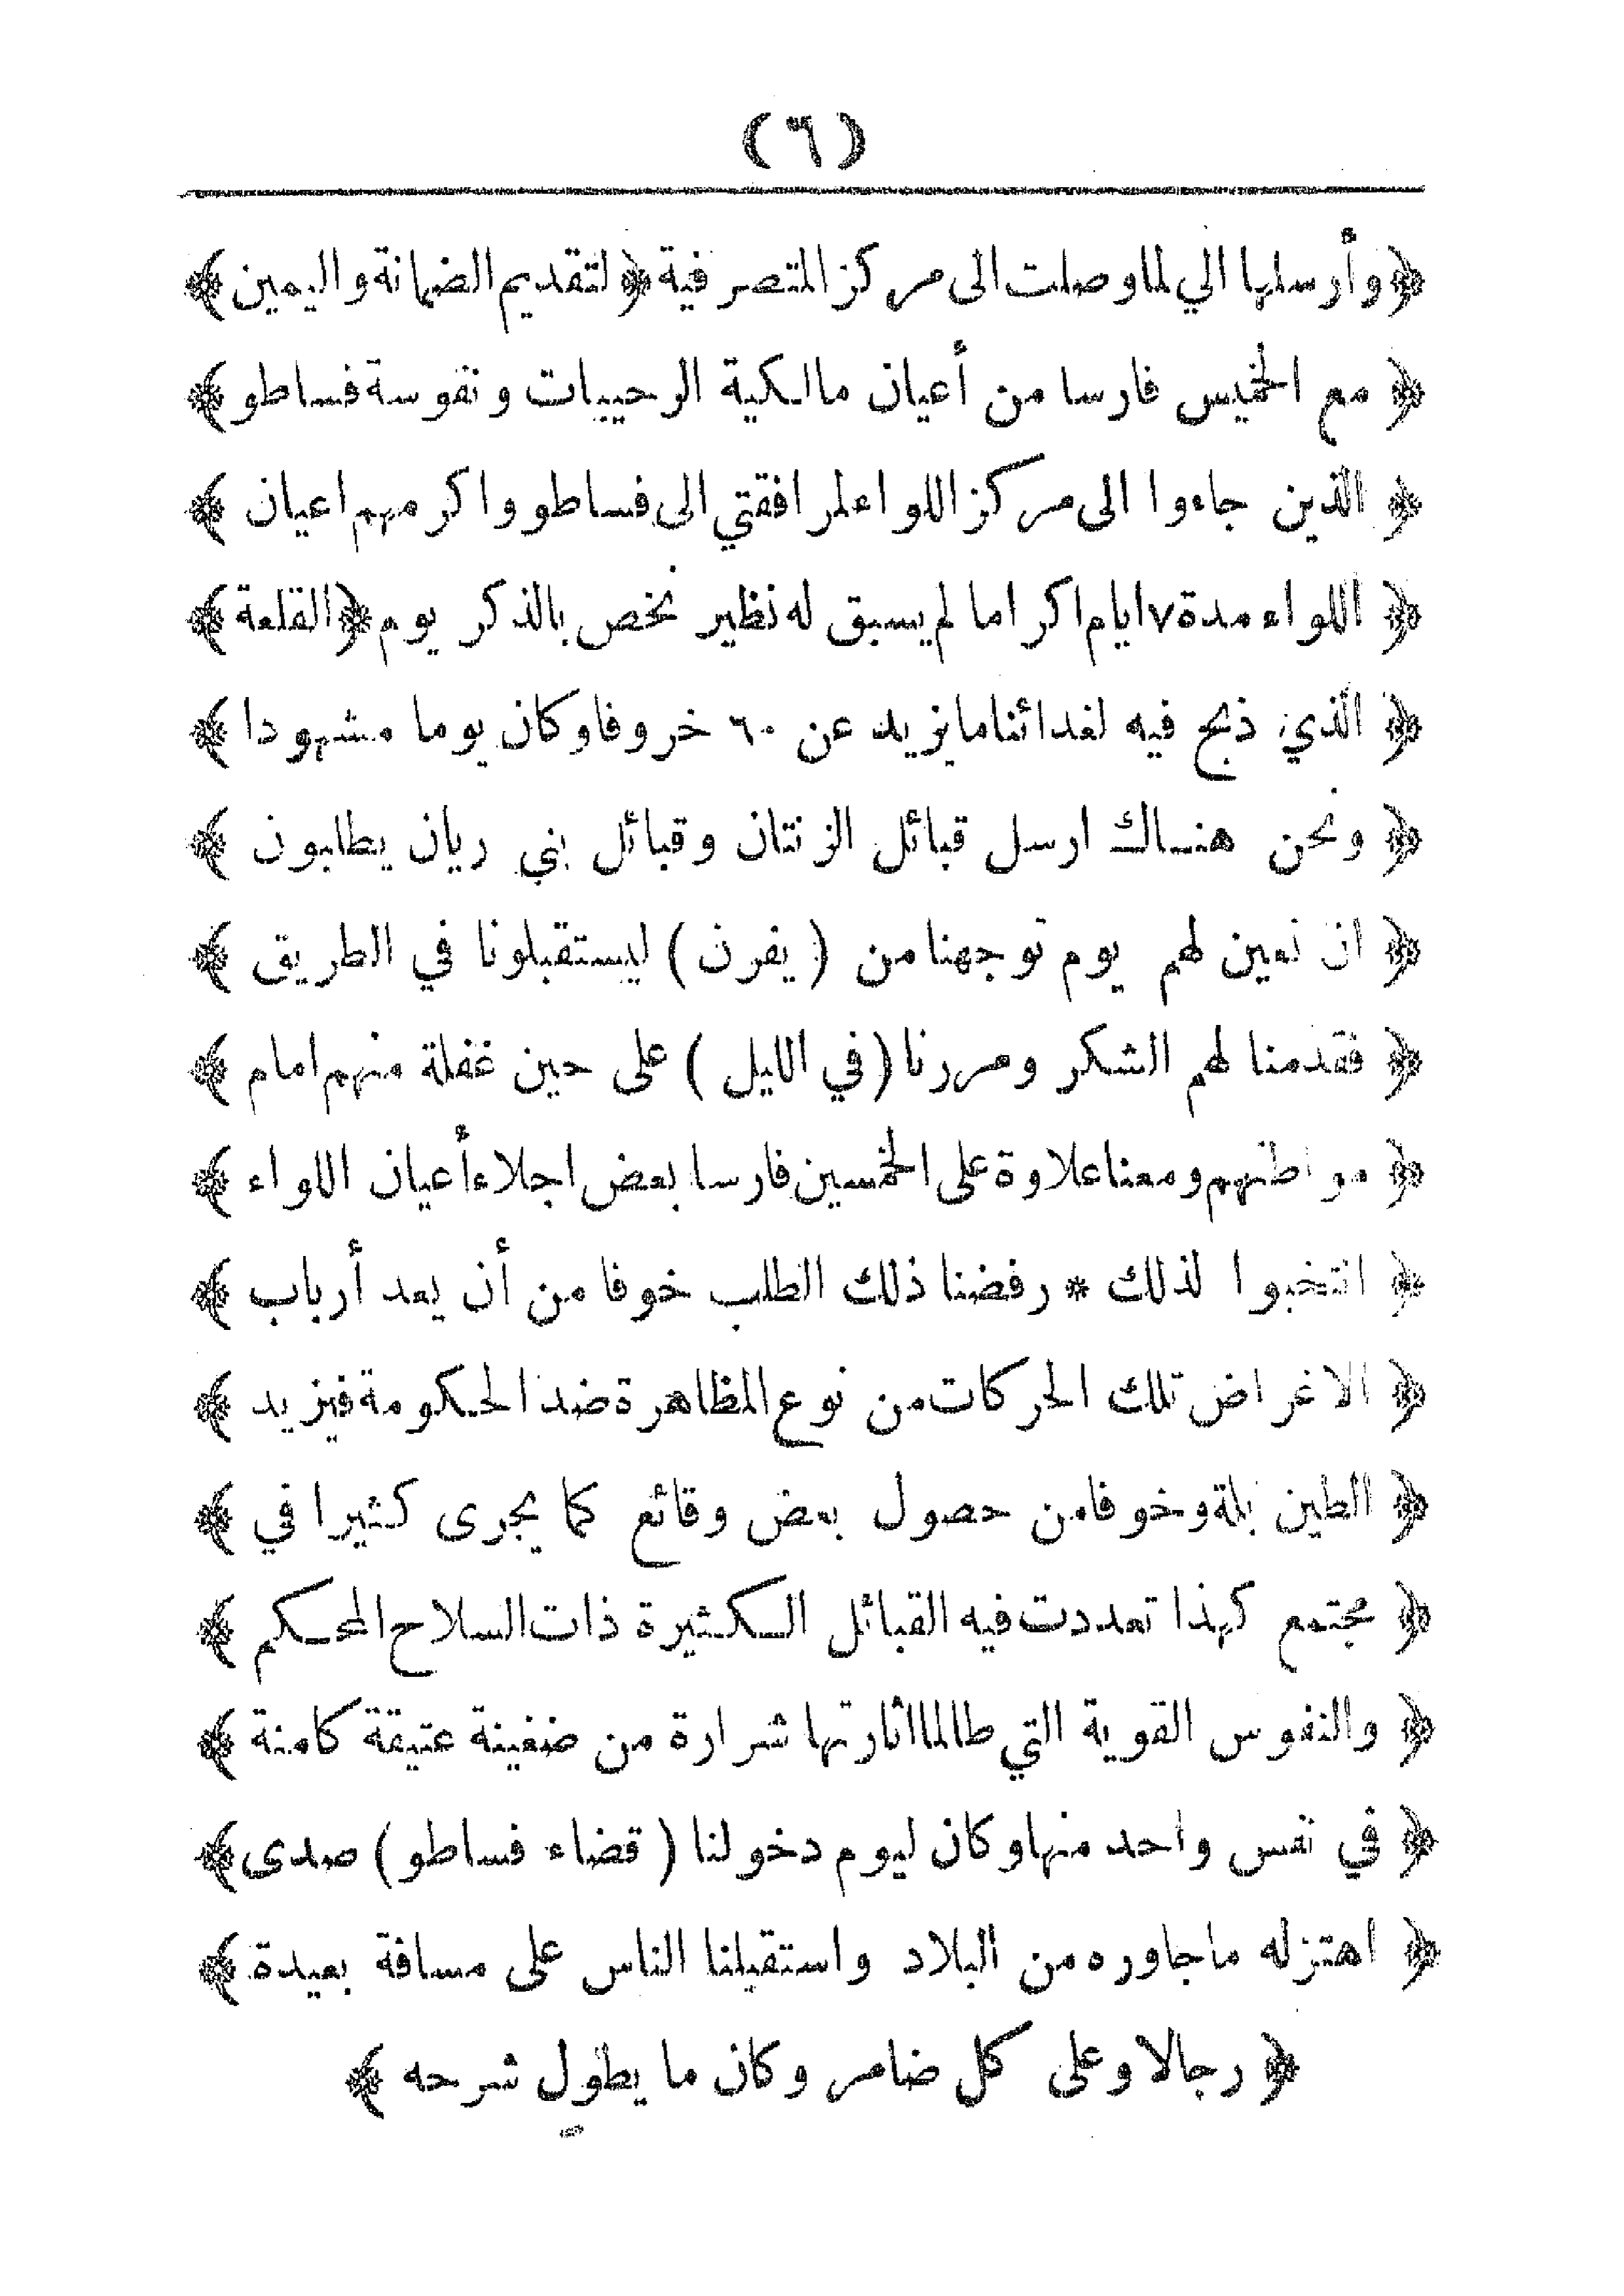 (٦)
﴿وأرسلها الي لما وصلت الى مركز المتصرفية ﴿لتقديم الضمانة واليمين﴾
﴿ مع الخميس فارسا من أعيان مالكية الرحيبات ونفوسة فساطو ﴾
﴿ الذين جاءوا الى مركز اللواء لمرافقتي الى فساطو واكرمهم اعيان ﴾
﴿ اللواء مدة ٧ ايام اكراما لم يسبق له نظير نخص بالذكر يوم ﴿القلعة﴾
﴿ الذي ذبح فيه لغدائنا ما يزيد عن ٦٠ خروفا وكان يوما مشهودا ﴾
﴿ ونحن هناك ارسل قبائل الزنتان وقبائل بني ريان يطلبون ﴾
﴿ ان نعين لهم يوم توجهنا من ( يفرن ) ليستقبلونا في الطريق ﴾
﴿ فقدمنا لهم الشكر ومررنا ( في الليل ) على حين غفلة منهم امام ﴾
﴿ مواطنهم ومعنا علاوة على الخمسين فارسا بعض اجلاء أعيان اللواء ﴾
﴿ انتخبوا لذلك * رفضنا ذلك الطلب خوفا من أن يعد أرباب ﴾
﴿ الاغراض تلك الحركات من نوع المظاهرة ضد الحكومة فيزيد ﴾
﴿ الطين بلة وخوفا من حصول بعض وقائع كما يجرى كثيرا في ﴾
﴿ مجتمع كهذا تعددت فيه القبائل الكثيرة ذات السلاح المحكم ﴾
﴿ والنفوس القوية التي طالما اثارتها شرارة من ضغينة عتيقة كامنة ﴾
﴿ في نفس واحد منها وكان ليوم دخولنا ( قضاء فساطو ) صدى﴾
﴿ اهتز له ما جاوره من البلاد واستقبلنا الناس على مسافة بعيدة ﴾
﴿ رجالا وعلى كل ضامر وكان ما يطول شرحه ﴾